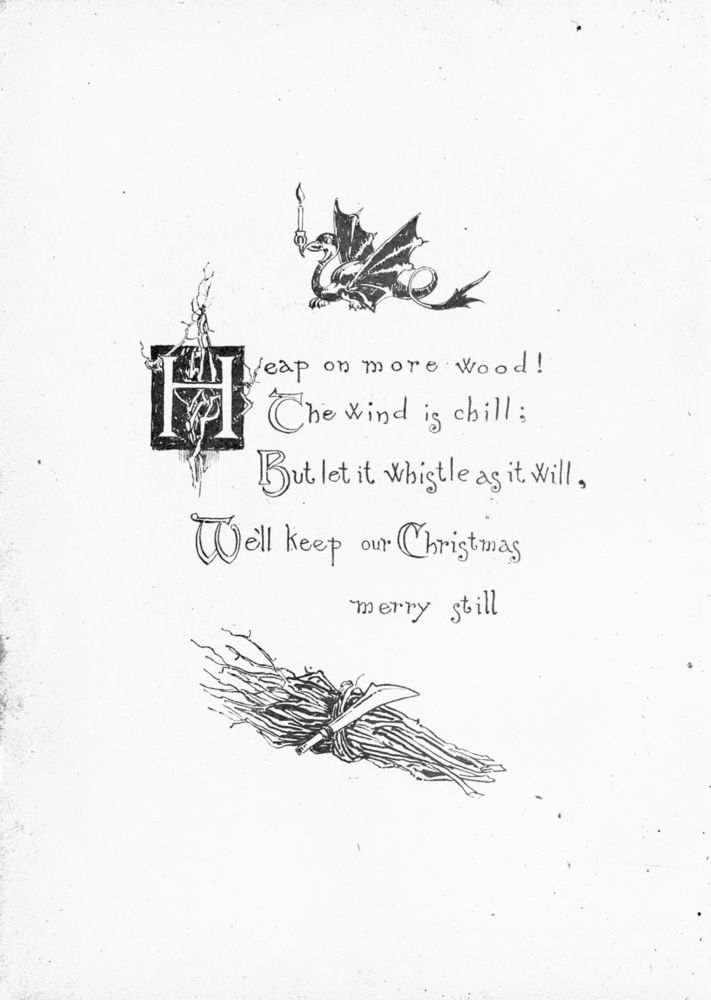 Heap on more wood!
The wind is chill;
But let it whistle as it will,
We'll keep our Christmas
merry still